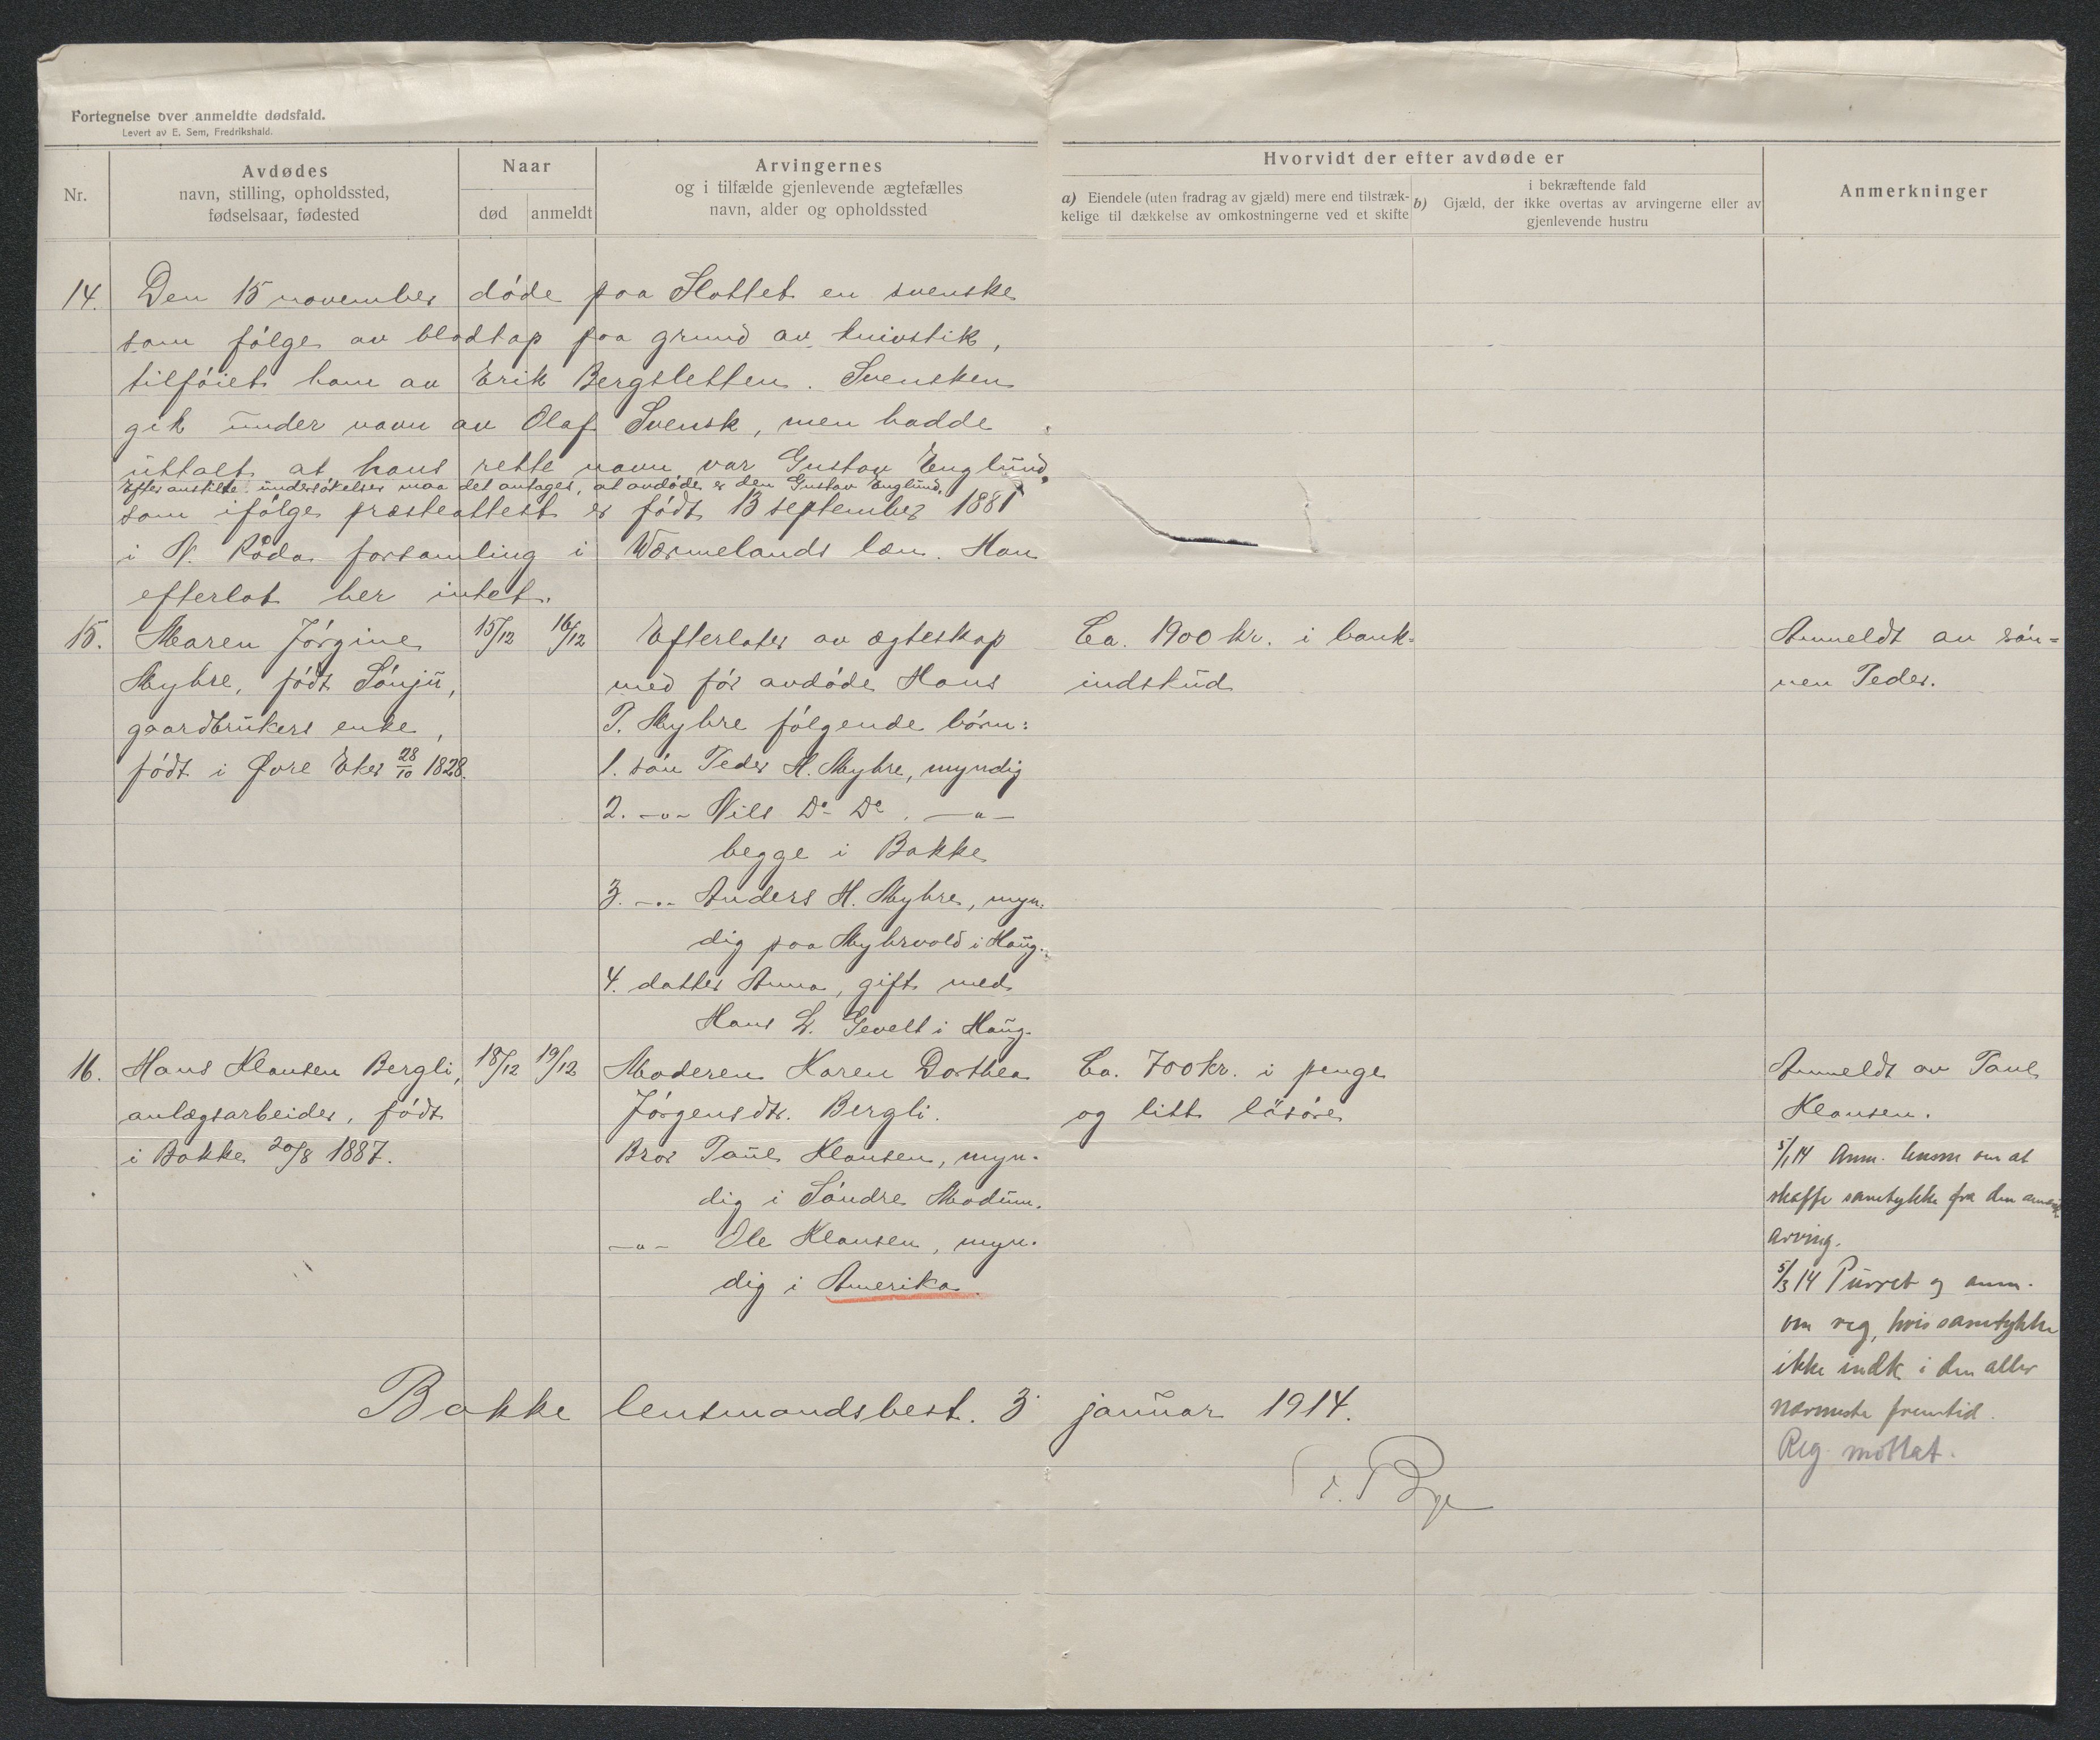 Fortegnelse over anmeldte dødsfald.
Levert av E. Sem, Fredrikshald.
Nr.
Avdødes
navn, stilling, opholdssted,
fødselsaar, fødested
Naar
død
anmeldt
Arvingernes
og i tilfælde gjenlevende ægtefælles
navn, alder og opholdssted
Hvorvidt der efter avdøde er
a) Eiendele (uten fradrag av gjæld) mere end tilstræk-
kelige til dækkelse av omkostningerne ved et skifte
i bekræftende fald
b) Gjæld, der ikke overtas av arvingerne eller av
gjenlevende hustru
Anmerkninger
14. Den 15 november døde paa Slottet en svenske
som følge av blodtap paa grund av knivstik,
tilføiet ham av Erik Bergsletten. Svensken
gik under navn av Olaf Svensk, men hadde
uttalt at hans rette navn var Gustav Englund.
Efter anstilte undersøkelser maa det antages, at avdøde er den Gustav Englund,
som ifølge præsteattest er født 13 september 1881
i N. Råda forsamling i Wærmelands læn. Han
efterlot her intet.
15. Maren Jørgine
Myhre, født Sønju,
gaardbrukers enke,
født i Øvre Eker 28/10 1828.
15/12
16/12
Efterlater av ægteskap
med før avdøde Hans
P. Myhre følgende børn:
1. søn Peder H. Myhre, myndig
2. -"- Nils Do Do. -"-
begge i Bakke
3. -"- Anders H. Myhre, myn-
dig paa Myhrvold i Haug.
4. datter Anna, gift med
Hans L. Gevelt i Haug.
Ca. 1900 kr. i bank-
indskud
Anmeldt av søn-
nen Peder.
16. Hans Klausen Bergli,
anlægsarbeider, født
i Bakke 20/8 1887.
18/12
19/12
Moderen Karen Dorthea
Jørgensdtr. Bergli.
Bror Paul Klausen, myn-
dig i Søndre Modum.
-"- Ole Klausen, myn-
dig i Amerika.
Ca. 700 kr. i penge
og litt løsøre
Anmeldt av Paul
Klausen.
5/1 14 Anm. lensm om at
skaffe samtykke fra den amerik.
arving.
5/3 14 Purret og anm.
om reg, hvis samtykke
ikke indk i den aller
nærmeste fremtid.
Reg mottat.
Bakke lensmandsbest. 3 januar 1914.